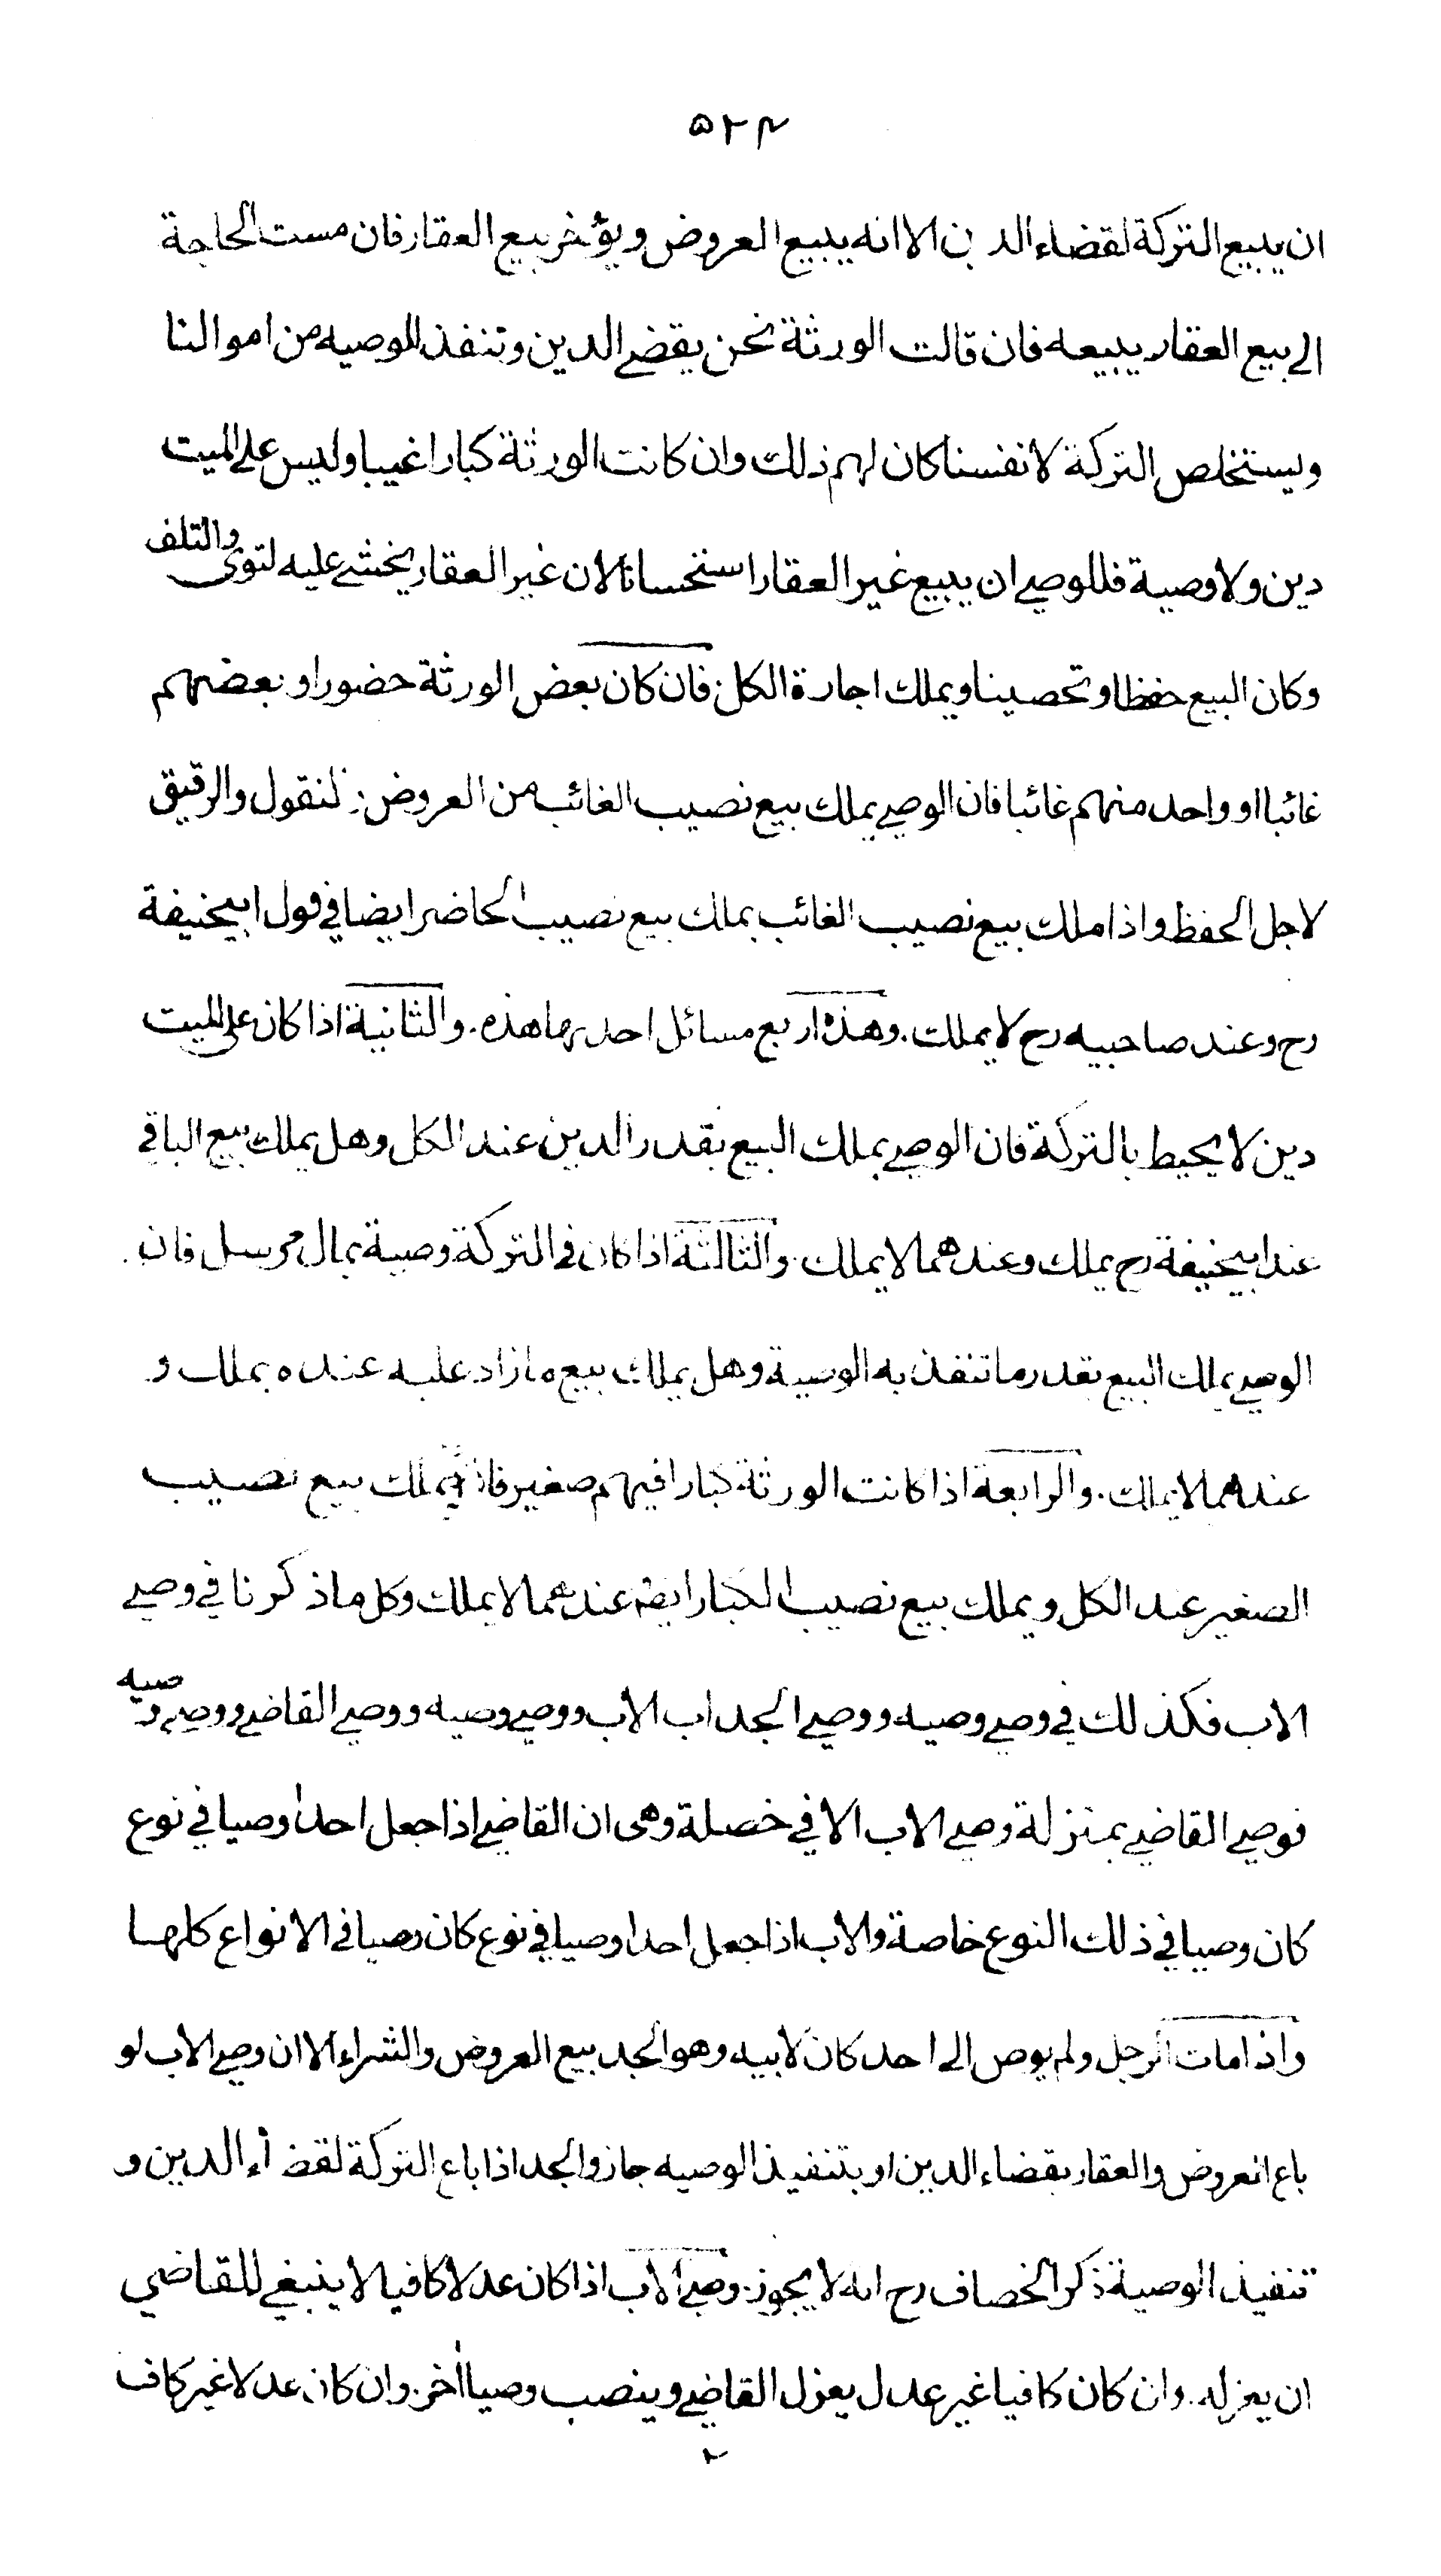 ۵۲۴
ان يبيع التركة لقضاء الدين الا انه يبيع العروض ويؤخر بيع العقار فان مست الحاجة
الى بيع العقار يبيعه فان قالت الورثة نحن يقضى الدين وتنفذ الوصيه من اموالنا
ويستخلص التركة لانفسنا كان لهم ذلك وان كانت الورثة كبارا غيبا وليس على الميت
دين ولا وصية فللوصى ان يبيع غير العقار استحسانا لان غير العقار يخشى عليه لتوى والتلف
وكان البيع حفظا وتحصينا ويملك اجارة الكل. فان كان بعض الورثة حضورا وبعضهم
غائبا او واحد منهم غائبا فان الوصى يملك بيع نصيب الغائب من العروض والمنقول والرقيق
لاجل الحفظ واذا ملك بيع نصيب الغائب يملك بيع نصيب الحاضر ايضا فى قول ابيحنيفة
رح وعند صاحبيه رح لا يملك. وهذه اربع مسائل احديها هذه. والثانية اذا كان على الميت
دين لا يحيط بالتركة فان الوصى يملك البيع بقدر الدين عند الكل وهل يملك بيع الباقى
عند ابيحنيفة رح يملك وعندهما لا يملك. والثالثة اذا كان فى التركة وصية بمال مرسل فان
الوصى يملك البيع بقدر ما تنفذ به الوصية وهل يملك بيع ما زاد عليه عنده يملك و
عندهما لا يملك. والرابعة اذا كانت الورثة كبارا فيهم صغير فانه يملك بيع نصيب
الصغير عند الكل ويملك بيع نصيب الكبار ايضا عندهما لا يملك وكل ما ذكرنا فى وصى
الاب فكذلك فى وصى وصيه ووصى الجد اب الاب ووصى وصيه ووصى القاضى ووصى وصيه
فوصى القاضى بمنزلة وصى الاب الا فى خصلة وهى ان القاضى اذا جعل احدا وصيا فى نوع
كان وصيا فى ذلك النوع خاصة والاب اذا جعل احدا وصيا فى نوع كان وصيا فى الانواع كلها
واذا مات الرجل ولم يوص الى احد كان لابيه وهو الجد بيع العروض والشراء الا ان وصى الاب لو
باع العروض والعقار بقضاء الدين او بتنفيذ الوصيه جاز والجد اذا باع التركة لقضاء الدين و
تنفيذ الوصية ذكر الخصاف رح انه لا يجوز. وصى الاب اذا كان عدلا كافيا لا ينبغى للقاضى
ان يعزله. وان كان كافيا غير عدل يعزل القاضى وينصب وصيا اخر. وان كان عدلا غير كاف
۲